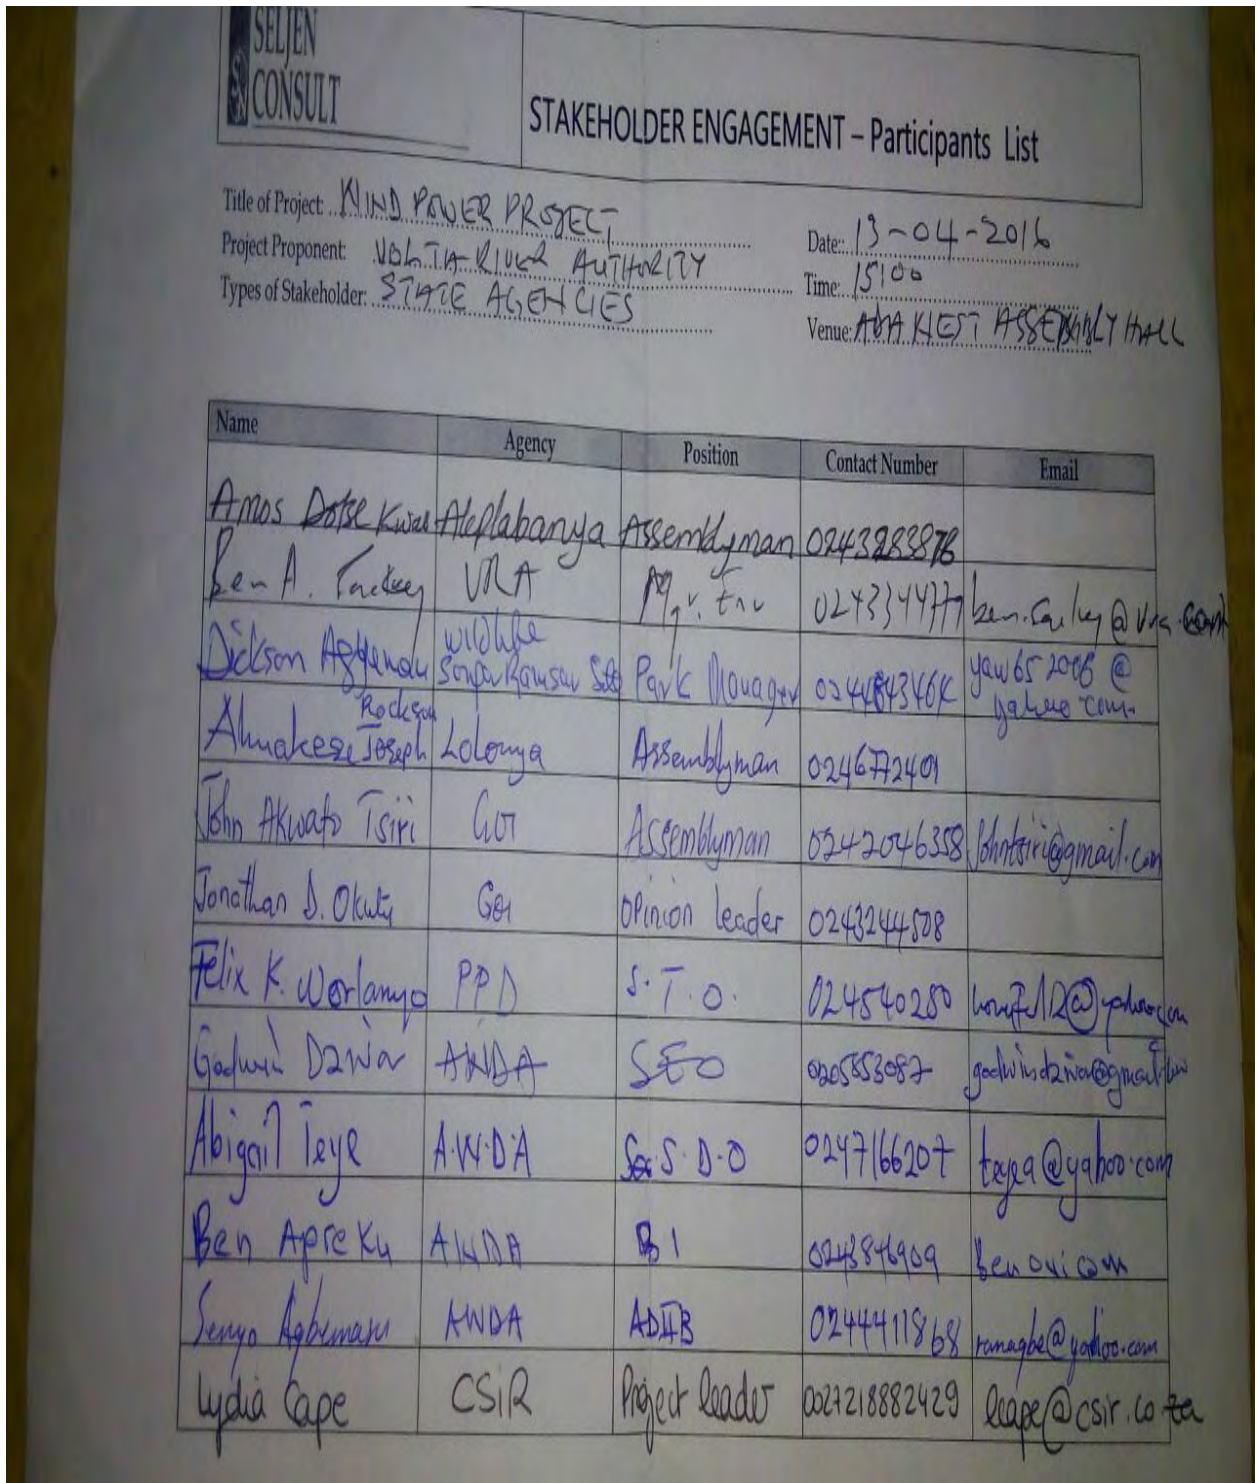 SELJEN
CONSULT
STAKEHOLDER ENGAGEMENT – Participants List
Title of Project: WIND POWER PROJECT
Project Proponent: VOLTA RIVER AUTHORITY
Types of Stakeholder: STATE AGENCIES
Date: 13-04-2016
Time: 15:00
Venue: ADA WEST ASSEMBLY HALL
Name Agency Position Contact Number Email
Amos Dotse Akplabanya Assemblyman
Ben A. VRA
Dickson Wildlife Songor Ramsar Site Park Manager
Rockson Joseph Lolonya Assemblyman 0246772401
John Akwato Tsiri Goi Assemblyman 0242046358 Johntsiri@gmail.com
Jonathan D. Okutu Goi Opinion leader 0243244508
Felix K. Worlanyo PPD S.T.O. 024540280
Godwin Dziwor AWDA SEO 0205853087
Abigail Teye A.W.D.A S.D.O 0247166207 teyea@yahoo.com
Ben Apreku AWDA BI 0243846909
Senyo AWDA ADIIB 0244411868 ramagbe@yahoo.com
Lydia Cape CSIR Project leader 0027218882429 lcape@csir.co.za